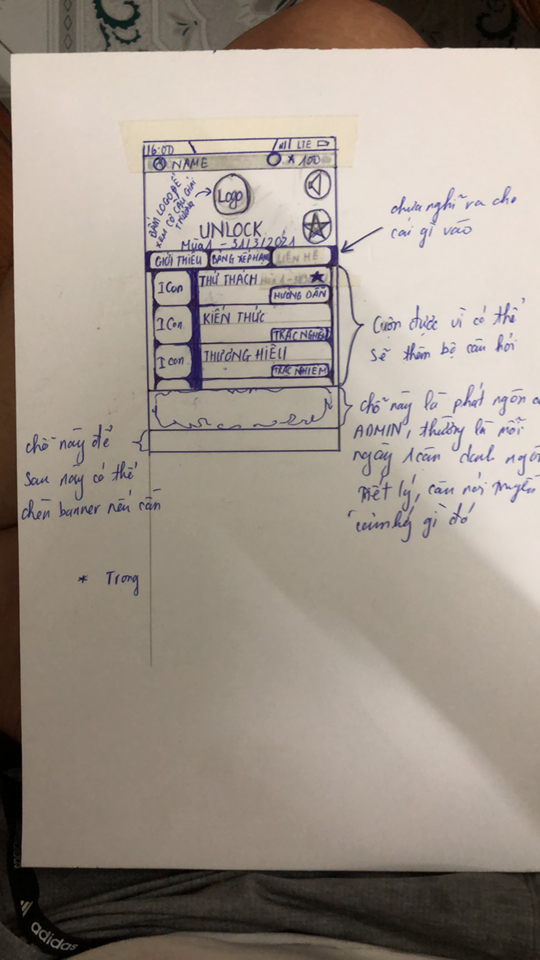 16:00 LTE
NAME 100
BẤM LOGO ĐỂ
XEM CƠ CẤU GIẢI
THƯỞNG
Logo
UNLOCK
Mùa 1 - 31/3/2021
GIỚI THIỆU BẢNG XẾP HẠNG LIÊN HỆ
ICon THỬ THÁCH
HƯỚNG DẪN
ICon KIẾN THỨC
TRẮC NGHIỆM
Icon THƯƠNG HIỆU
TRẮC NGHIỆM
chưa nghĩ ra cho
cái gì vào
Cuộn được vì có thể
sẽ thêm bộ câu hỏi
chỗ này là phát ngôn
ADMIN, thường là mỗi
ngày 1 câu danh ngôn
triết lý, câu nói truyền
cảm hứng gì đó
chỗ này để
sau này có thể
chèn banner nếu cần
* Trong
adidas